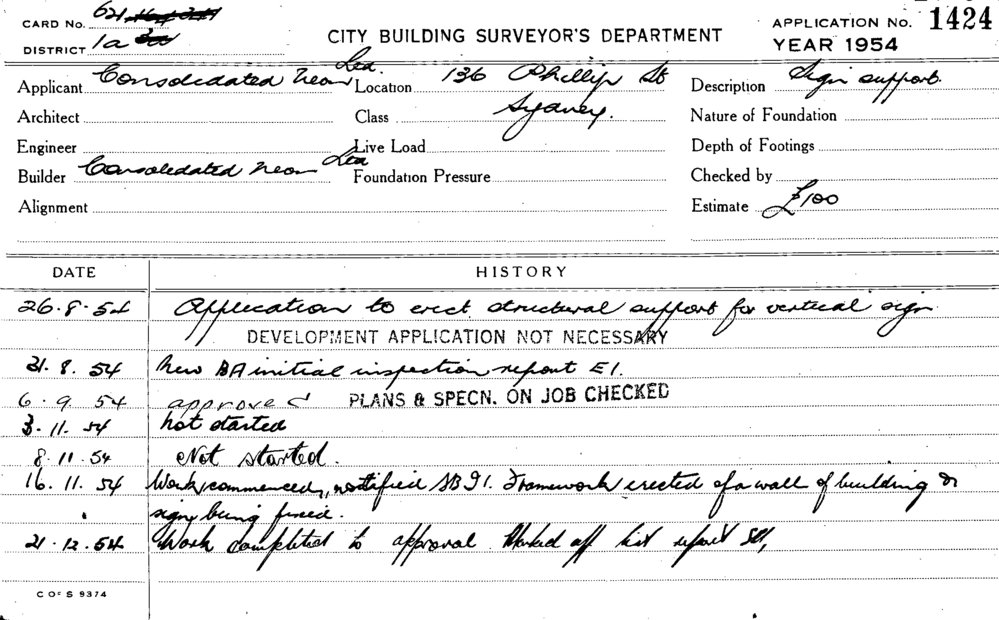 CARD No. 621
DISTRICT 1a
CITY BUILDING SURVEYOR'S DEPARTMENT
APPLICATION No. 1424
YEAR 1954
Applicant Consolidated Neon Ltd. Location 136 Phillip St Description Sign support.
Architect Class Sydney. Nature of Foundation
Engineer Live Load Depth of Footings
Builder Consoledated Neon Ltd Foundation Pressure Checked by
Alignment Estimate £100
DATE HISTORY
26.8.54 Application to erect structural support for vertical sign
DEVELOPMENT APPLICATION NOT NECESSARY
31.8.54 New BA initial inspection report E1.
6.9.54 approved PLANS & SPECN. ON JOB CHECKED
3.11.54 not started
8.11.54 Not started.
16.11.54 Work commenced, notified SB91. Framework erected of a wall of building &
sign being fixed.
21.12.54 Work completed to approval Marked off list report
C OF S 9374